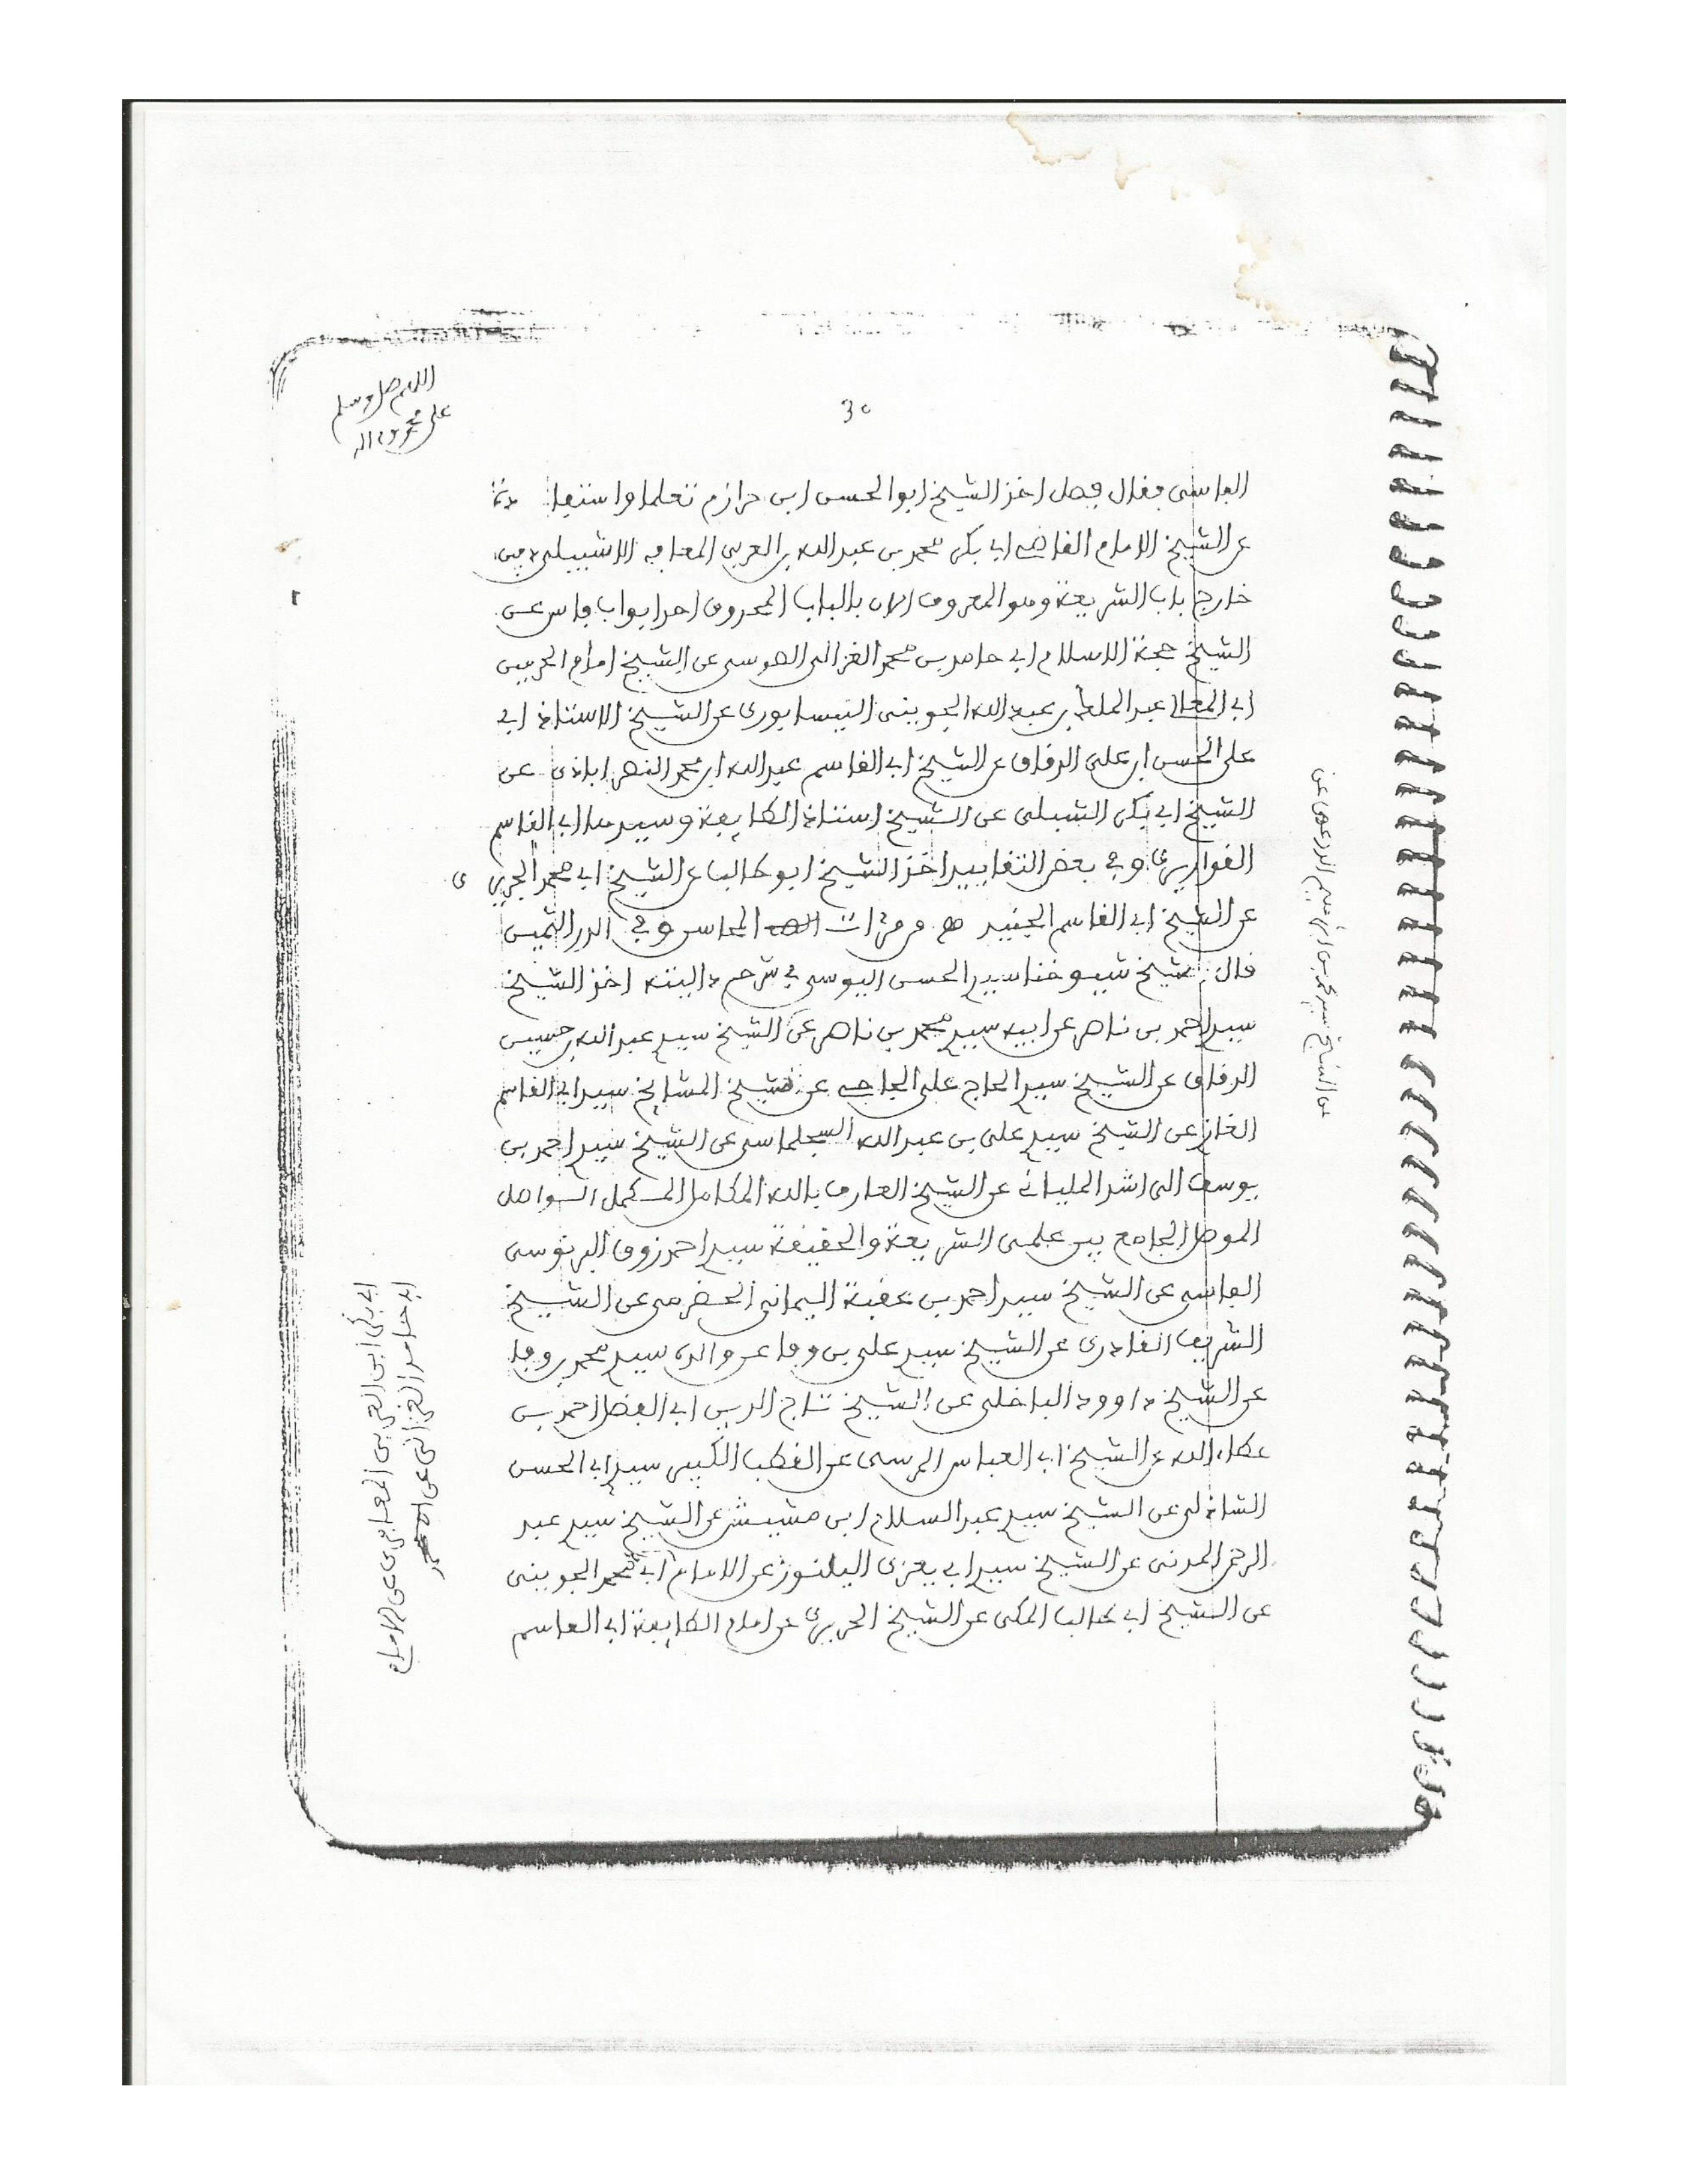 اللهم صل وسلم
على محمد وءاله
30
الفاسى فقال فصل اخذ الشيخ ابو الحسن ابن حرازم تعلما واستفا دة
عن الشيخ الامام القاضى ابى بكر محمد بن عبد الله بن العربى المعافرى الاشبيلى دفين
خارج باب الشريعة وهو المعروف الان بالباب المحروق احد ابواب فاس عن
الشيخ حجة الاسلام ابى حامد بن محمد الغزالى الطوسى عن الشيخ امام الحرمين
ابى المعالى عبد الملك بن عبد الله الجوينى النيسابورى عن الشيخ الاستاذ ابى
على الحسن ابن على الدقاق عن الشيخ ابى القاسم عبد الله ابن محمد النصراباذى عن
الشيخ ابى بكر الشبلى عن الشيخ استاذ الطايفة وسيدها ابى القاسم
القواريرى وفى بعض التقاييد اخذ الشيخ ابو طالب عن الشيخ ابى محمد الجريرى
عن الشيخ ابى القاسم الجنيد المحاسن وفى الدر الثمين
قال شيخ شيوخنا سيد الحسن اليوسى فى شرح داليته اخذ الشيخ
سيد احمد بن ناصر عن ابيه سيد محمد بن ناصر عن الشيخ سيد عبد الله بن حسين
الرقاق عن الشيخ سيد الحاج على الحاجى عن شيخ المشايخ سيد ابى القاسم
الغاز عن الشيخ سيد على بن عبد الله السجلماسى عن الشيخ سيد احمد بن
يوسف الراشد المليانى عن الشيخ العارف بالله الكامل المكمل الواصل
الموصل الجامع بين علمى الشريعة والحقيقة سيد احمد زروق البرنوسى
الفاسى عن الشيخ سيد احمد بن عقبة اليمانى الحضرمى عن الشيخ
الشريف القادرى عن الشيخ سيد على بن وفا عن والده سيد محمد وفا
عن الشيخ داوود الباخلى عن الشيخ تاج الدين ابى الفضل احمد بن
عطاء الله عن الشيخ ابى العباس المرسى عن القطب الكبير سيد ابى الحسن
الشاذلى عن الشيخ سيد عبد السلام ابن مشيش عن الشيخ سيد عبد
الرحمن المدنى عن الشيخ سيد ابى يعزى اليلنور عن الامام ابى محمد الجوينى
عن الشيخ ابى طالب المكى عن الشيخ الجريرى عن امام الطايفة ابى القاسم
عن الشيخ سيد محمد بن ناصر الدرعى عن
ابى بكر ابن العربى المعافرى عن الامام
ابى حامد الغزالى عن